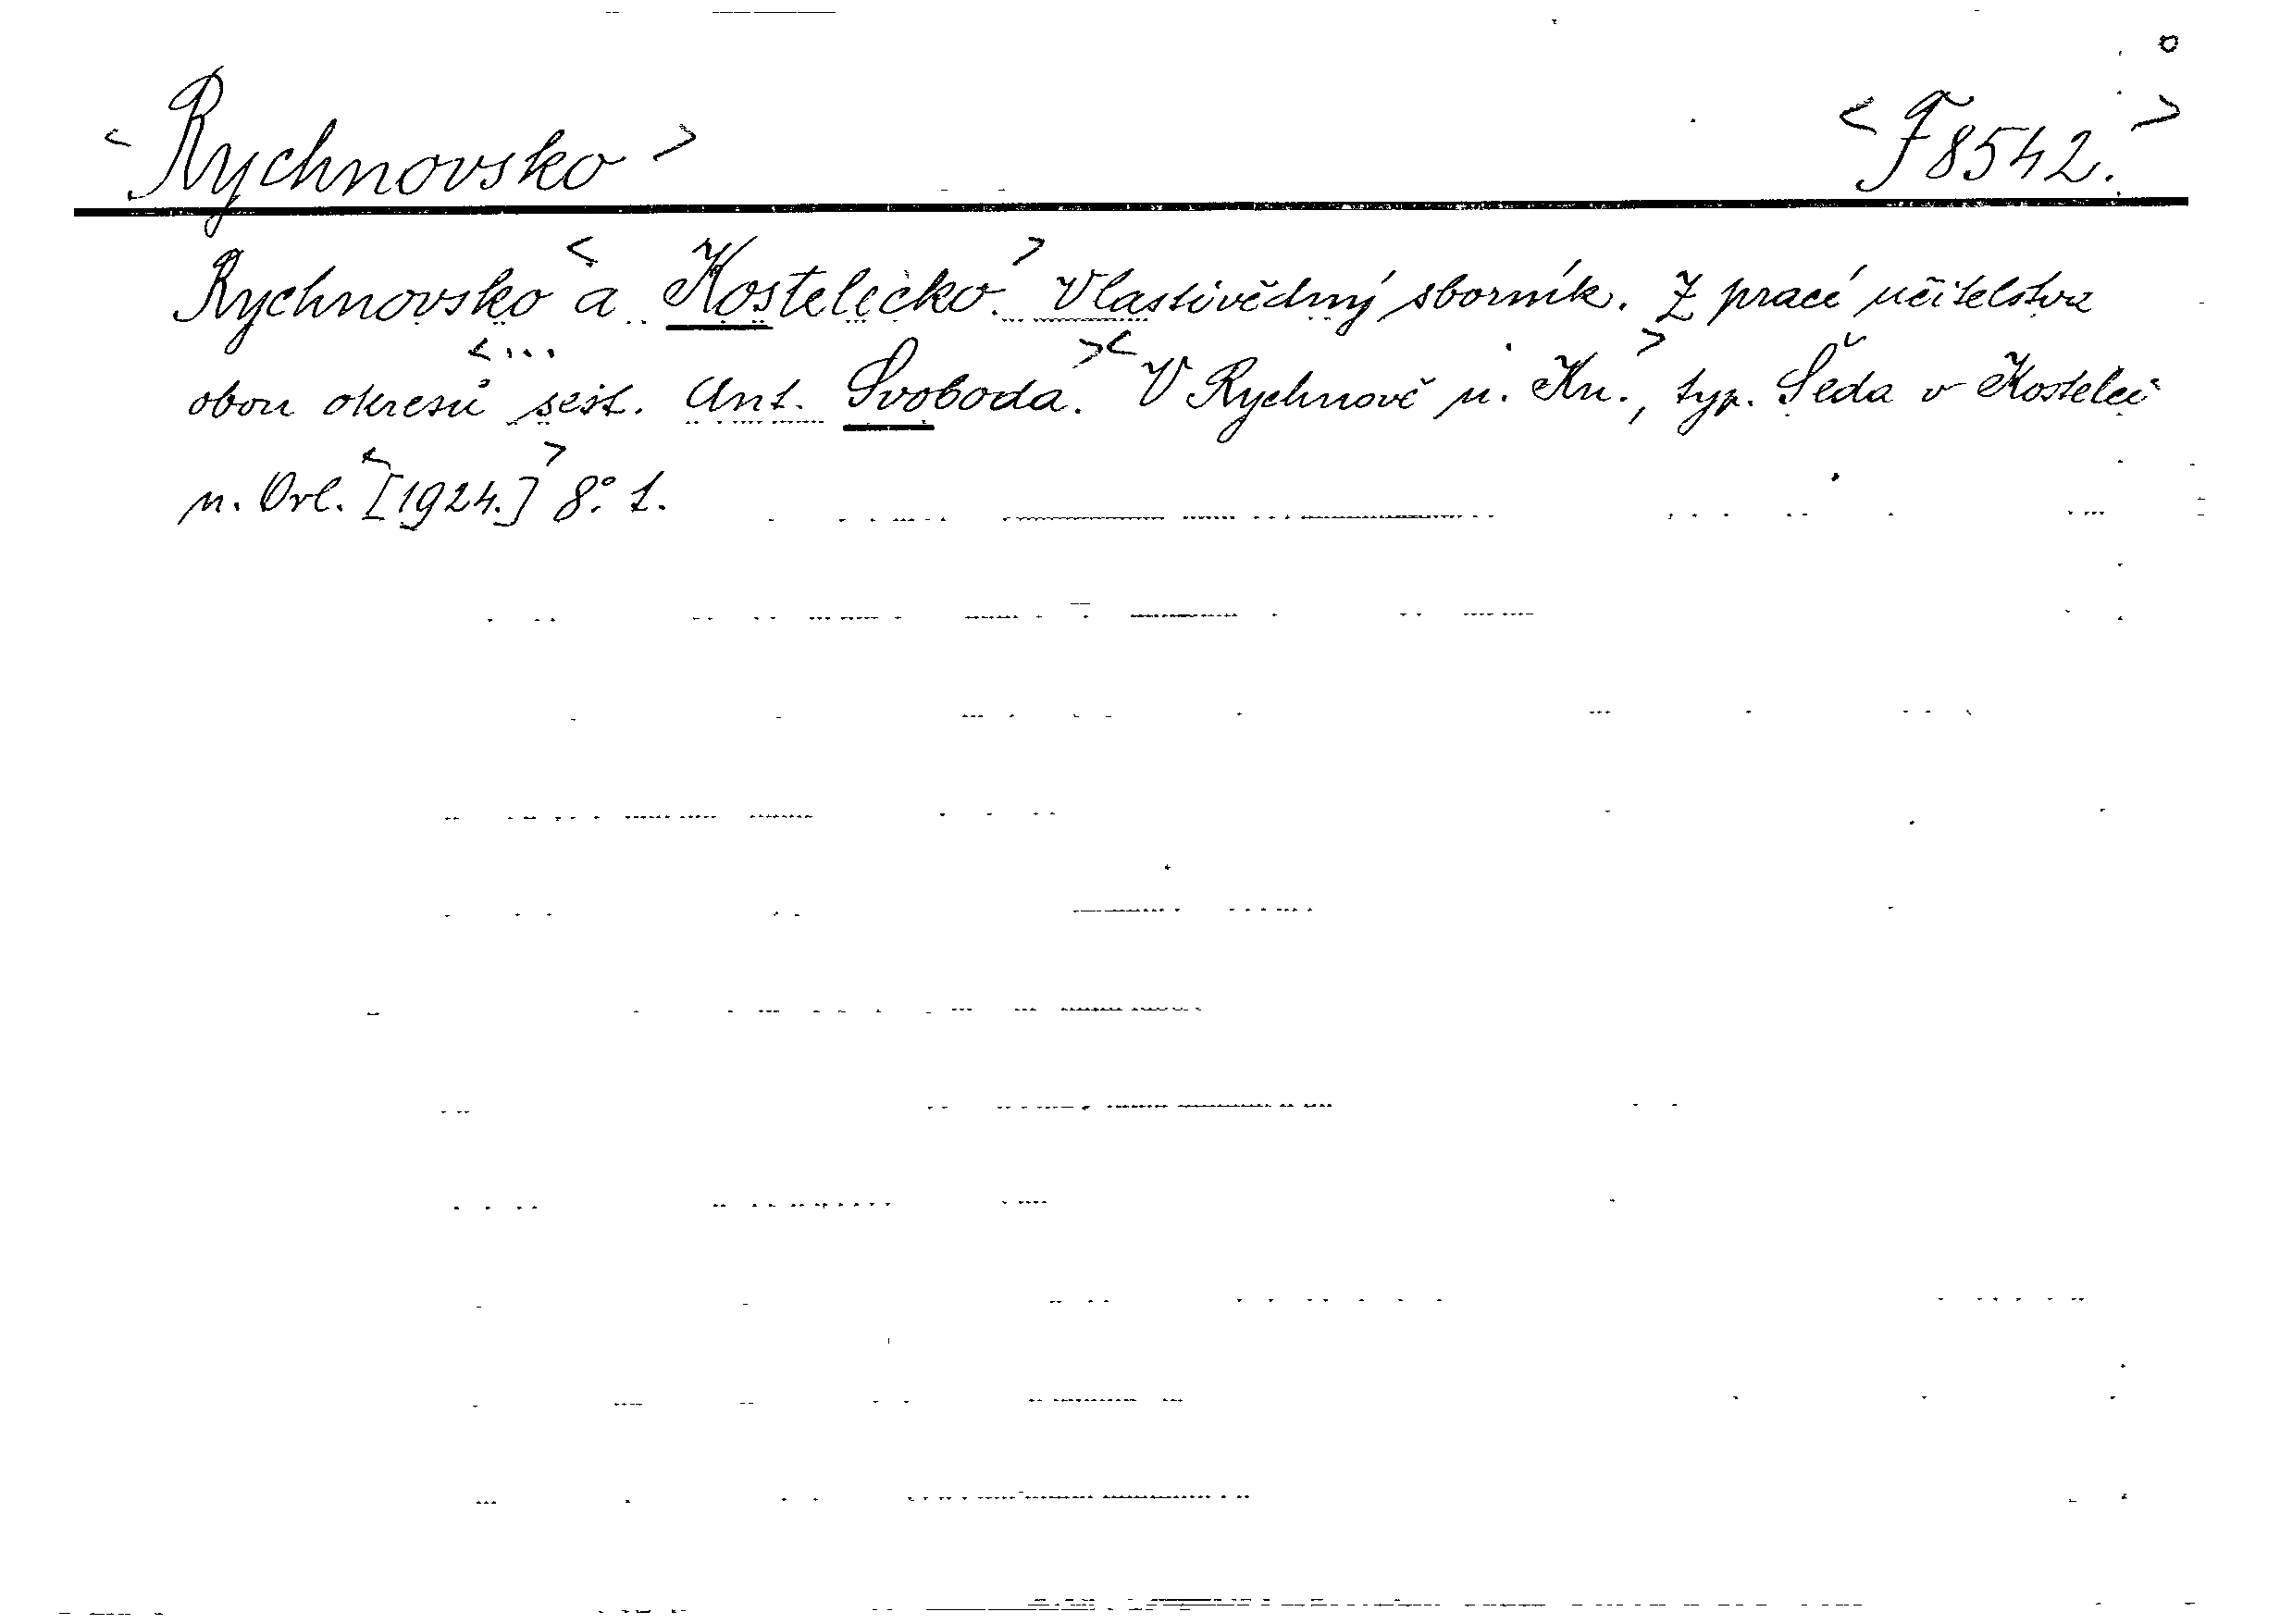 <Rychnovsko> <F 8542.>
Rychnovsko <a Kostelecko.> Vlastivědný sborník. Z prací učitelstva
obou okresů <... sest. Ant. Svoboda.> <V Rychnově n. Kn.>, typ. Šeda v Kostelci
n. Orl. <[1924.]> 8°. 1.